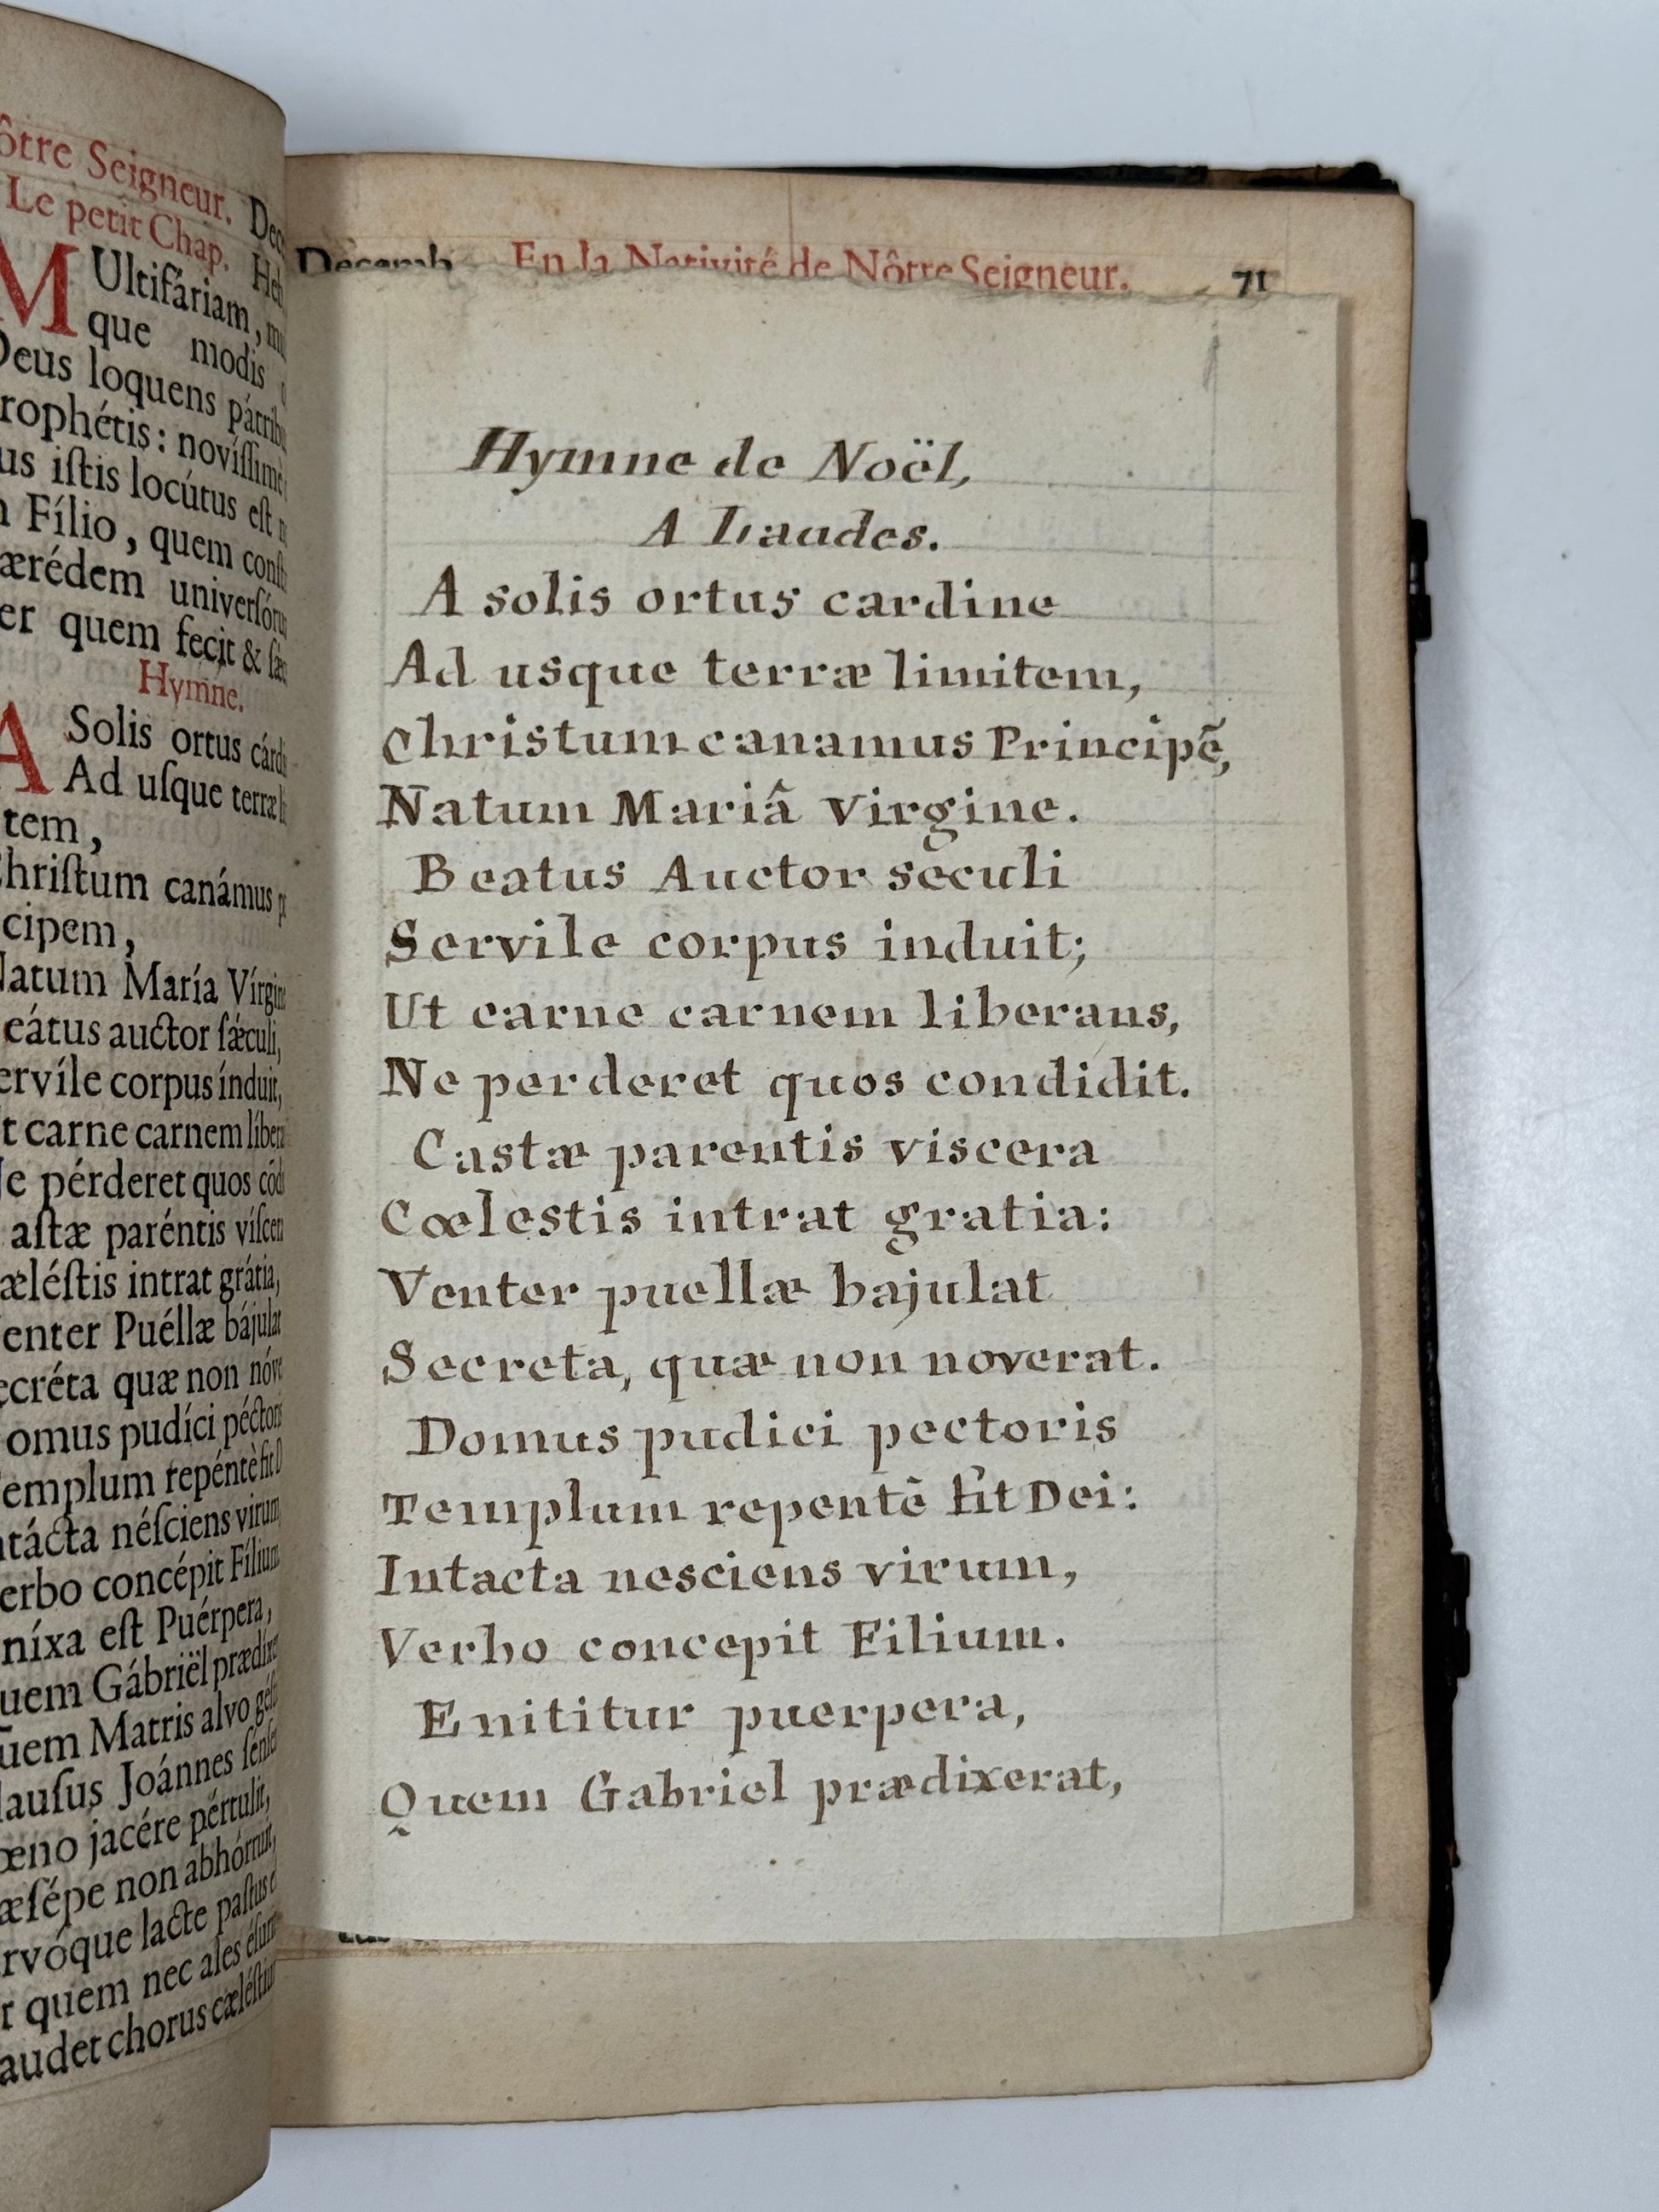 ôtre Seigneur.
Le petit Chap.
MUltifáriam,
que modis
Deus loquens
rophétis: novíssimè
us istis locútus est
Fílio, quem
ærédem
er quem fecit &
Hymne.
A Solis ortus
Ad usque terræ
tem,
Christum canámus
cipem,
Natum María
eátus auctor sǽculi,
ervíle corpus índuit,
t carne carnem
Ne pérderet quos
astæ paréntis
æléstis intrat grátia,
enter Puéllæ bájulat
ecréta quæ non
omus pudíci
emplum repéntè fit
ntácta nésciens virum
erbo concépit Fílium
níxa est Puérpera,
uem Gábriël
uem Matris alvo
lausus Joánnes
œno jacére pértulit,
æsépe non abhórruit,
rvóque lacte pastus
r quem nec ales
audet chorus
Decemb. En la Nativité de Nôtre Seigneur. 71
Hymne de Noël,
A Laudes.
A solis ortus cardine
Ad usque terræ limitem,
Christum canamus Principē,
Natum Mariâ Virgine.
Beatus Auctor sēculi
Servile corpus induit;
Ut carne carnem liberans,
Ne perderet quos condidit.
Castæ parentis viscera
Cœlestis intrat gratia:
Venter puellæ bajulat
Secreta, quæ non noverat.
Domus pudici pectoris
Templum repentè fit Dei:
Intacta nesciens virum,
Verbo concepit Filium.
Enititur puerpera,
Quem Gabriel prædixerat,